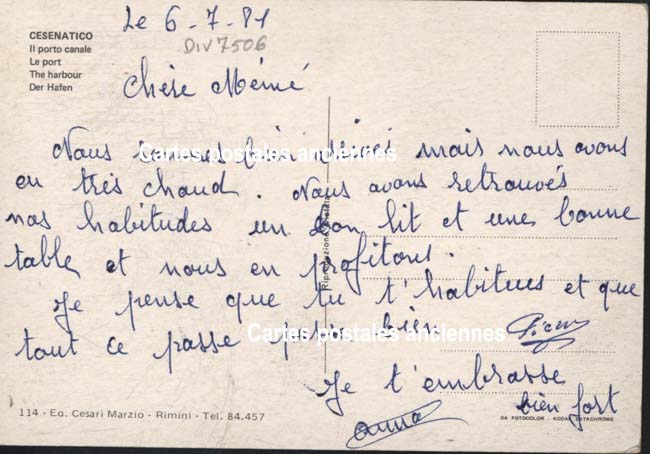 Le 6-7-81
DIV7506
CESENATICO
Il porto canale
Le port
The harbour
Der Hafen
Chère Mémé
Nous sommes bien arrivés mais nous avons
eu très chaud. Nous avons retrouvés
nos habitudes un bon lit et une bonne
table et nous en profitons.
Je pense que tu t'habitues et que
tout ce passe bien
Je t'embrasse
bien fort
Cartes postales anciennes
Cartes postales anciennes
114 - Ed. Cesari Marzio - Rimini - Tel. 84.457
DA FOTOCOLOR - KODAK EKTACHROME